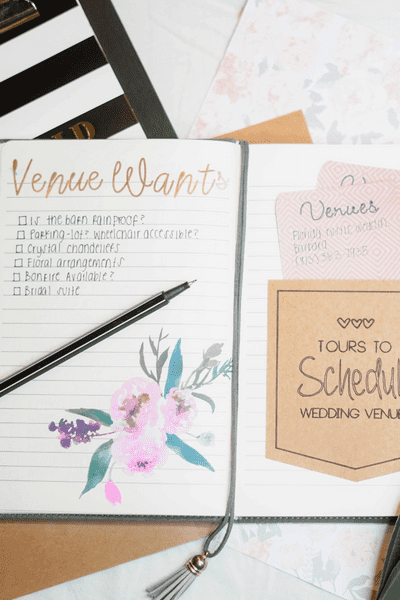 LD
Venue Wants
Is the barn rainproof?
Parking-lot? Wheelchair accessible?
Crystal chandeliers
Floral arrangements
Bonfire Available?
Bridal suite
Venues
Barbara
TOURS TO
Schedul
WEDDING VENUE